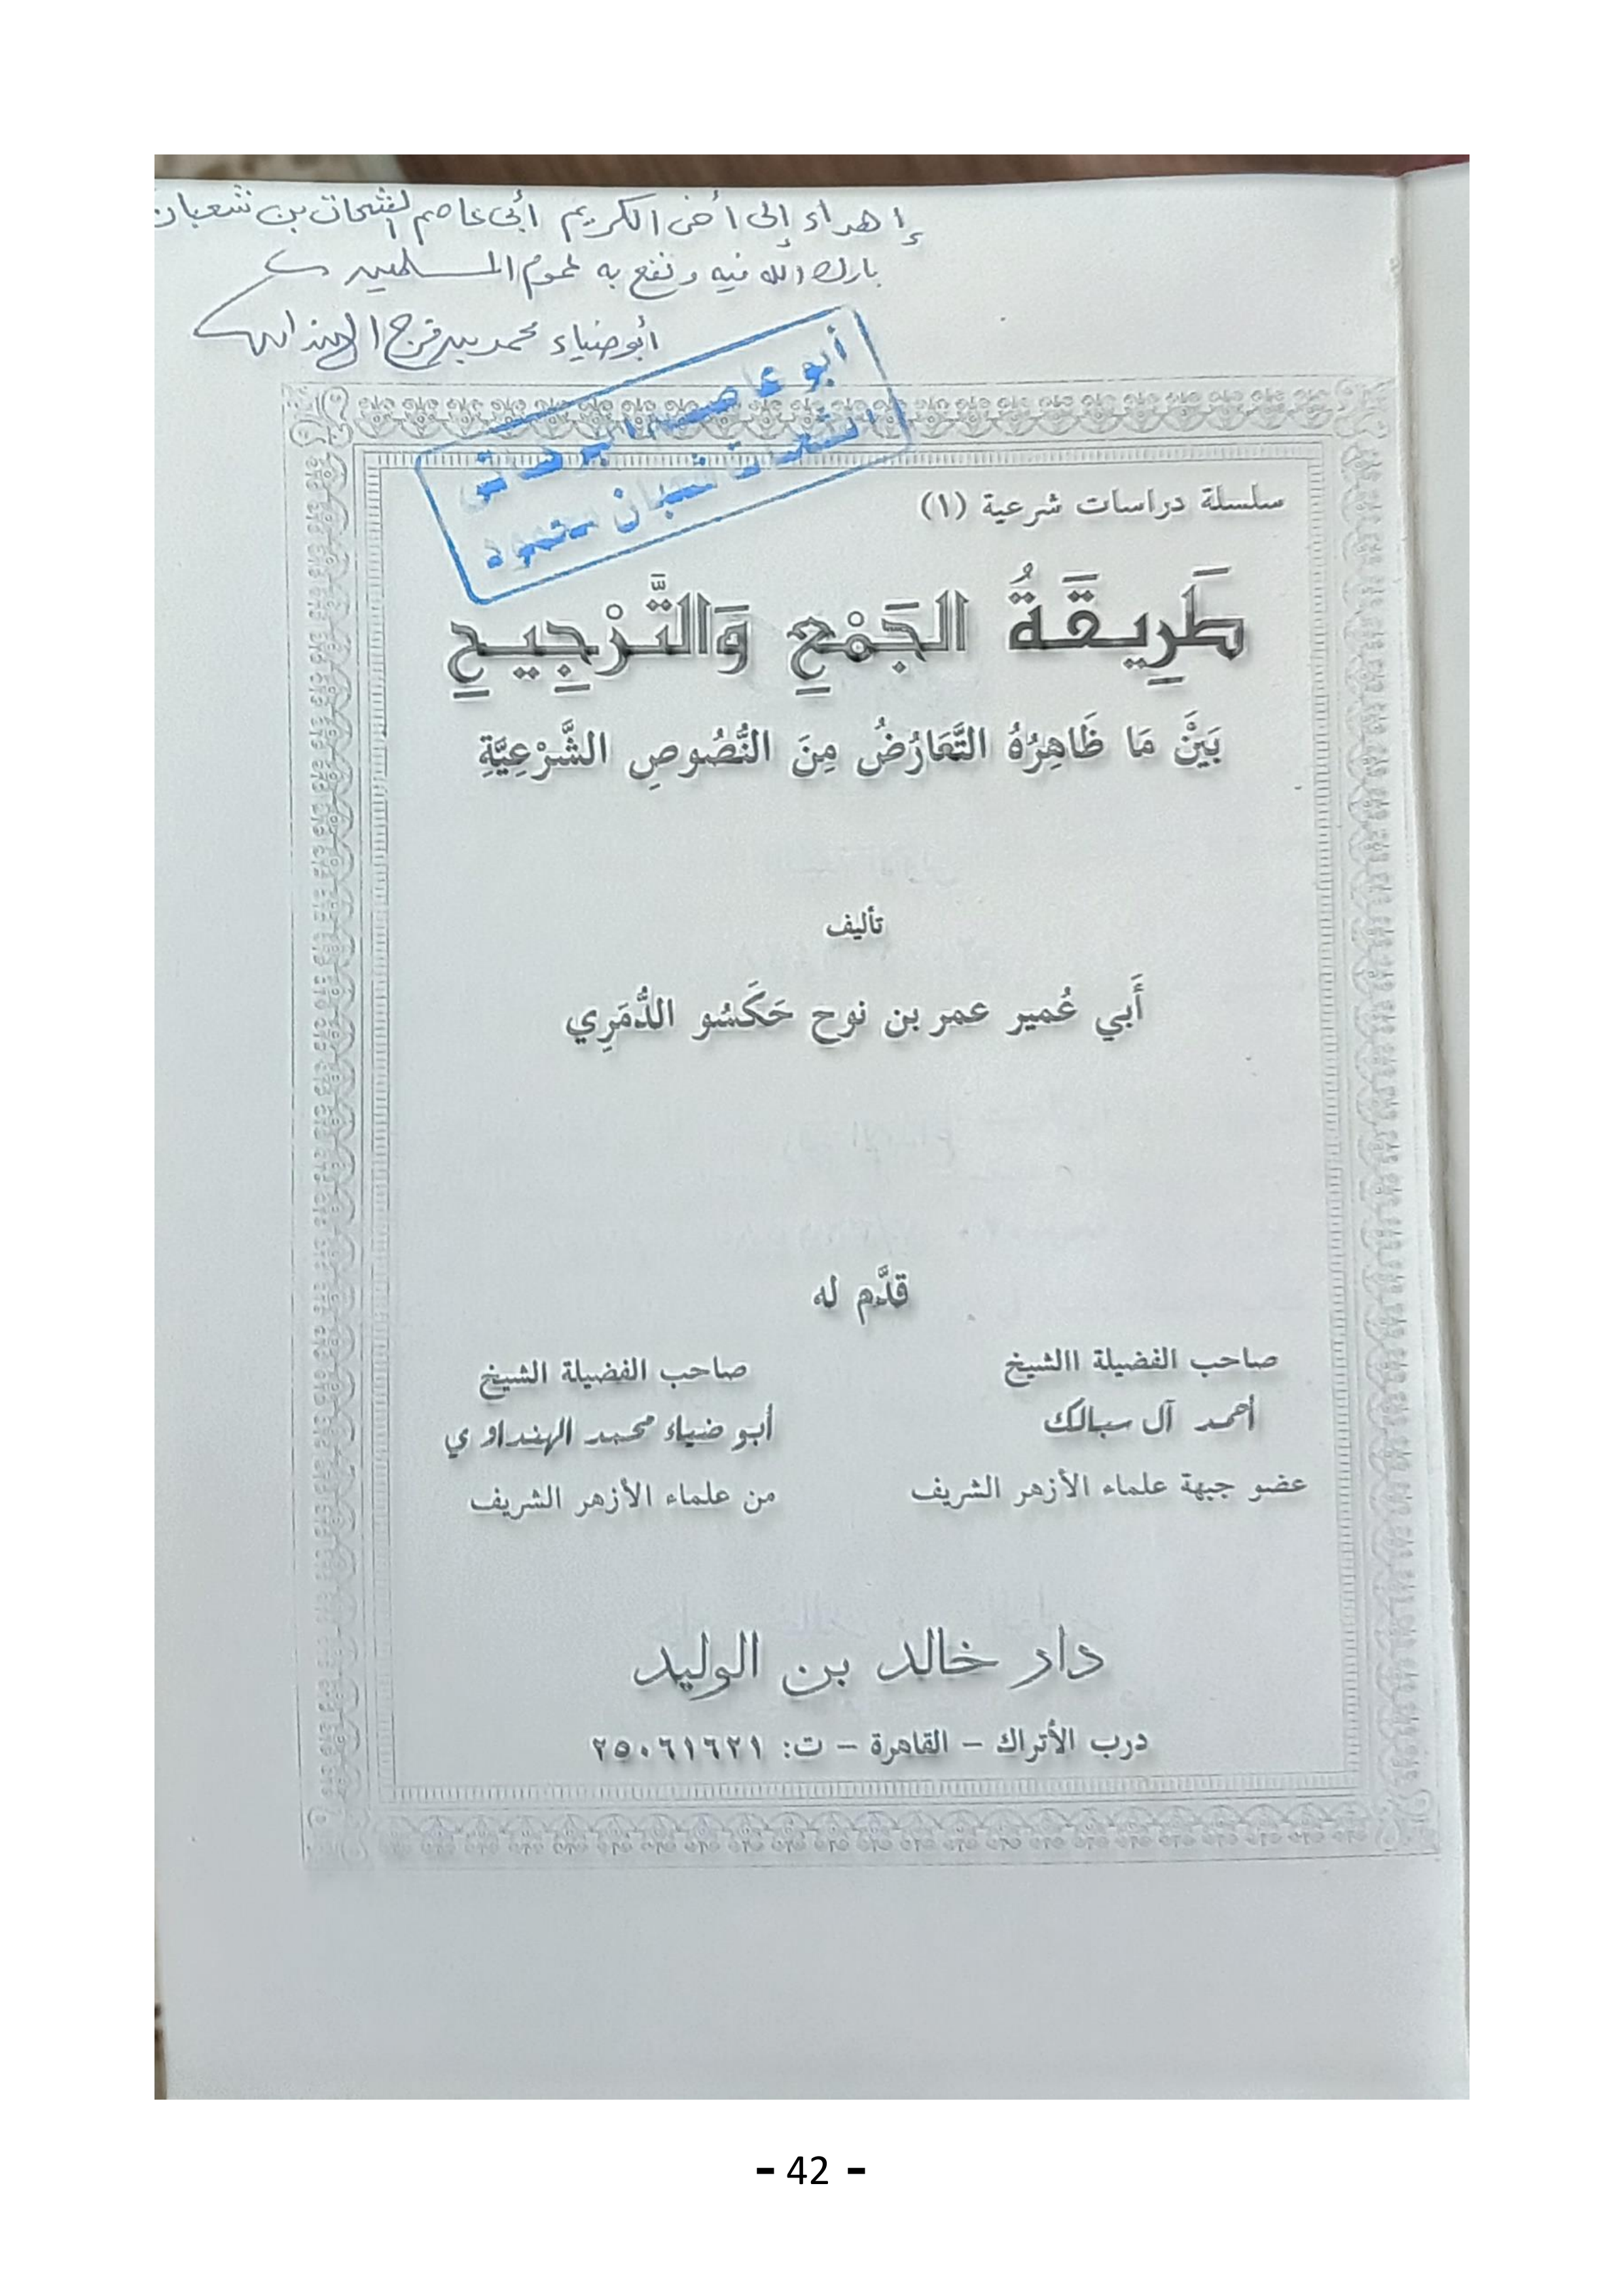 إهداء إلى أخى الكريم أبى عاصم الشحات بن شعبان
بارك الله فيه ونفع به عموم المسلمين
أبوضياء محمد بن فرج الهنداوى
أبو عاصم البركاتى
الشحات شعبان محمود
سلسلة دراسات شرعية (١)
طَرِيقَةُ الجَمْعِ وَالتَّرْجِيحِ
بَيْنَ مَا ظَاهِرُهُ التَّعَارُضُ مِنَ النُّصُوصِ الشَّرْعِيَّةِ
تأليف
أَبي عُمير عمر بن نوح حَكَسُو الدُّمَرِي
قدَّم له
صاحب الفضيلة االشيخ
أحمد آل سبالك
عضو جبهة علماء الأزهر الشريف
صاحب الفضيلة الشيخ
أبو ضياء محمد الهنداوي
من علماء الأزهر الشريف
دار خالد بن الوليد
درب الأتراك – القاهرة – ت: ٢٥٠٦١٦٢١
- 42 -